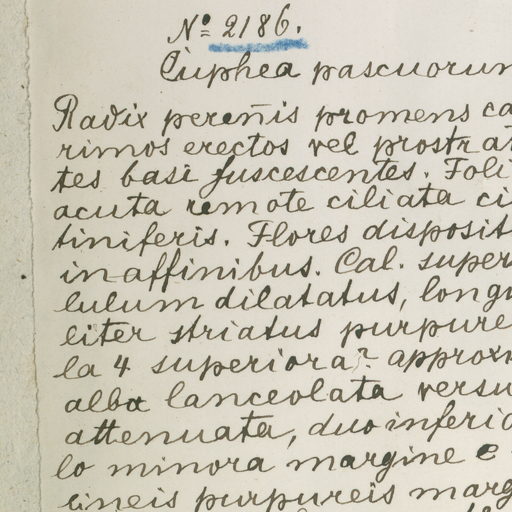 No 2186.
Cuphea pascuorum
Radix pereñis promens ca
rimos erectos vel prostrat
tes basi fuscescentes. Foli
acuta remote ciliata ci
tiniferis. Flores disposit
in affinibus. Cal. super
lulum dilatatus, longi
liter striatus purpure
la 4 superiora? approxi
alba lanceolata versu
attenuata, duo inferio
lo minora margine e
lineis purpureis marg